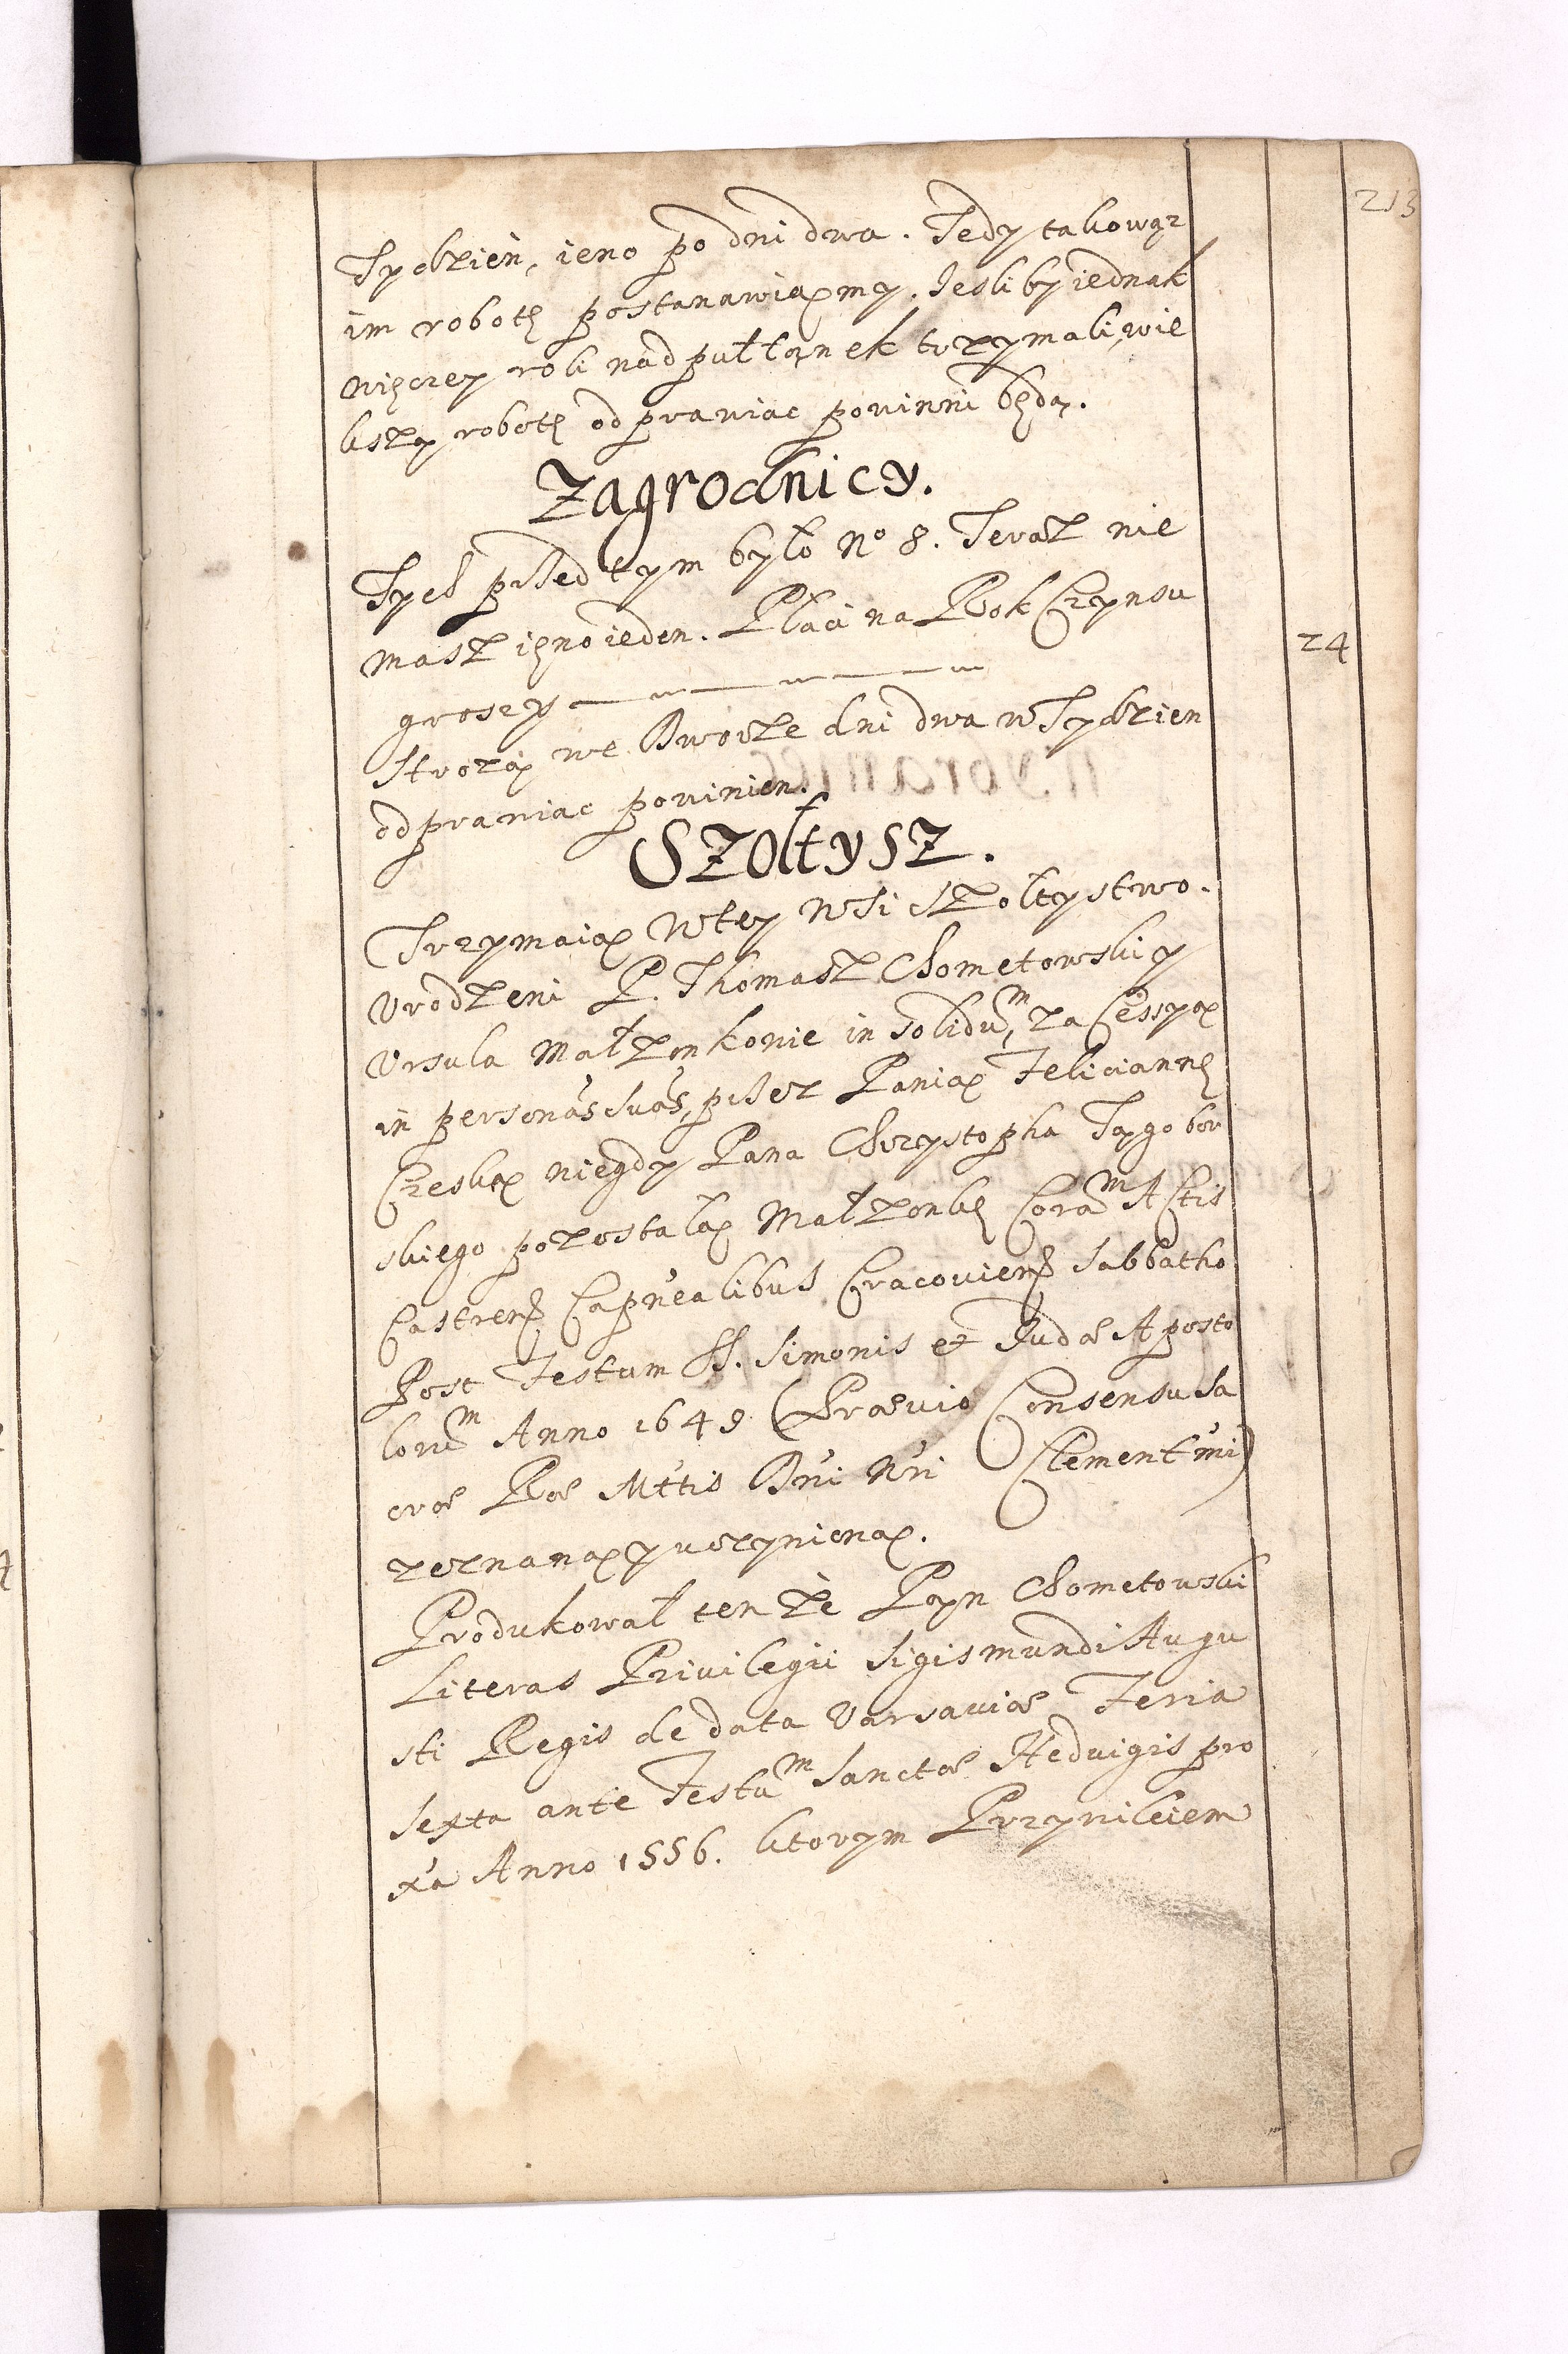 213
Tydzień, ieno po dni dwa. Tedy takowąz
im robotę postanawiaymy. Jesliby iednak
więczey roli nad pułłanek trzymali, wie
kszą robotę odprawiac powinni będą.
Zagrodnicy.
Tych przed tym było No 8. Teraz nie
masz ieno ieden. Płaci na Rok Czynsu
groszy 24
Strożą we Dworze dni dwa w Tydzien
odprawiac powinien.
Szołtysz.
Trzymaią w tey wsi szołtystwo.
Urodzeni P. Thomasz Chometowski y
Ursula Małzonkowie in solidum, za Cessyą
in personas suas, przez Panią Feliciannę
Czeską niegdy Pana Chrzystopha Taygobor
skiego pozostałą Małzonkę Coram Actis
Castren Capnealibus Cracovien Sabbatho
Post Festum SS. Simonis et Judæ Aposto
lorum Anno 1649 (Prævio Consensu Sa
cræ Ræ Mttis Dni Nri Clementmi)
zeznaną y uczynioną.
Produkował tenże Pan Chometowski
Literas Privilegii Sigismundi Augu
sti Regis de data Varsaviæ Feria
Sexta ante Festum Sanctæ Hedvigis pro
xa Anno 1556. ktorym Przywileiem